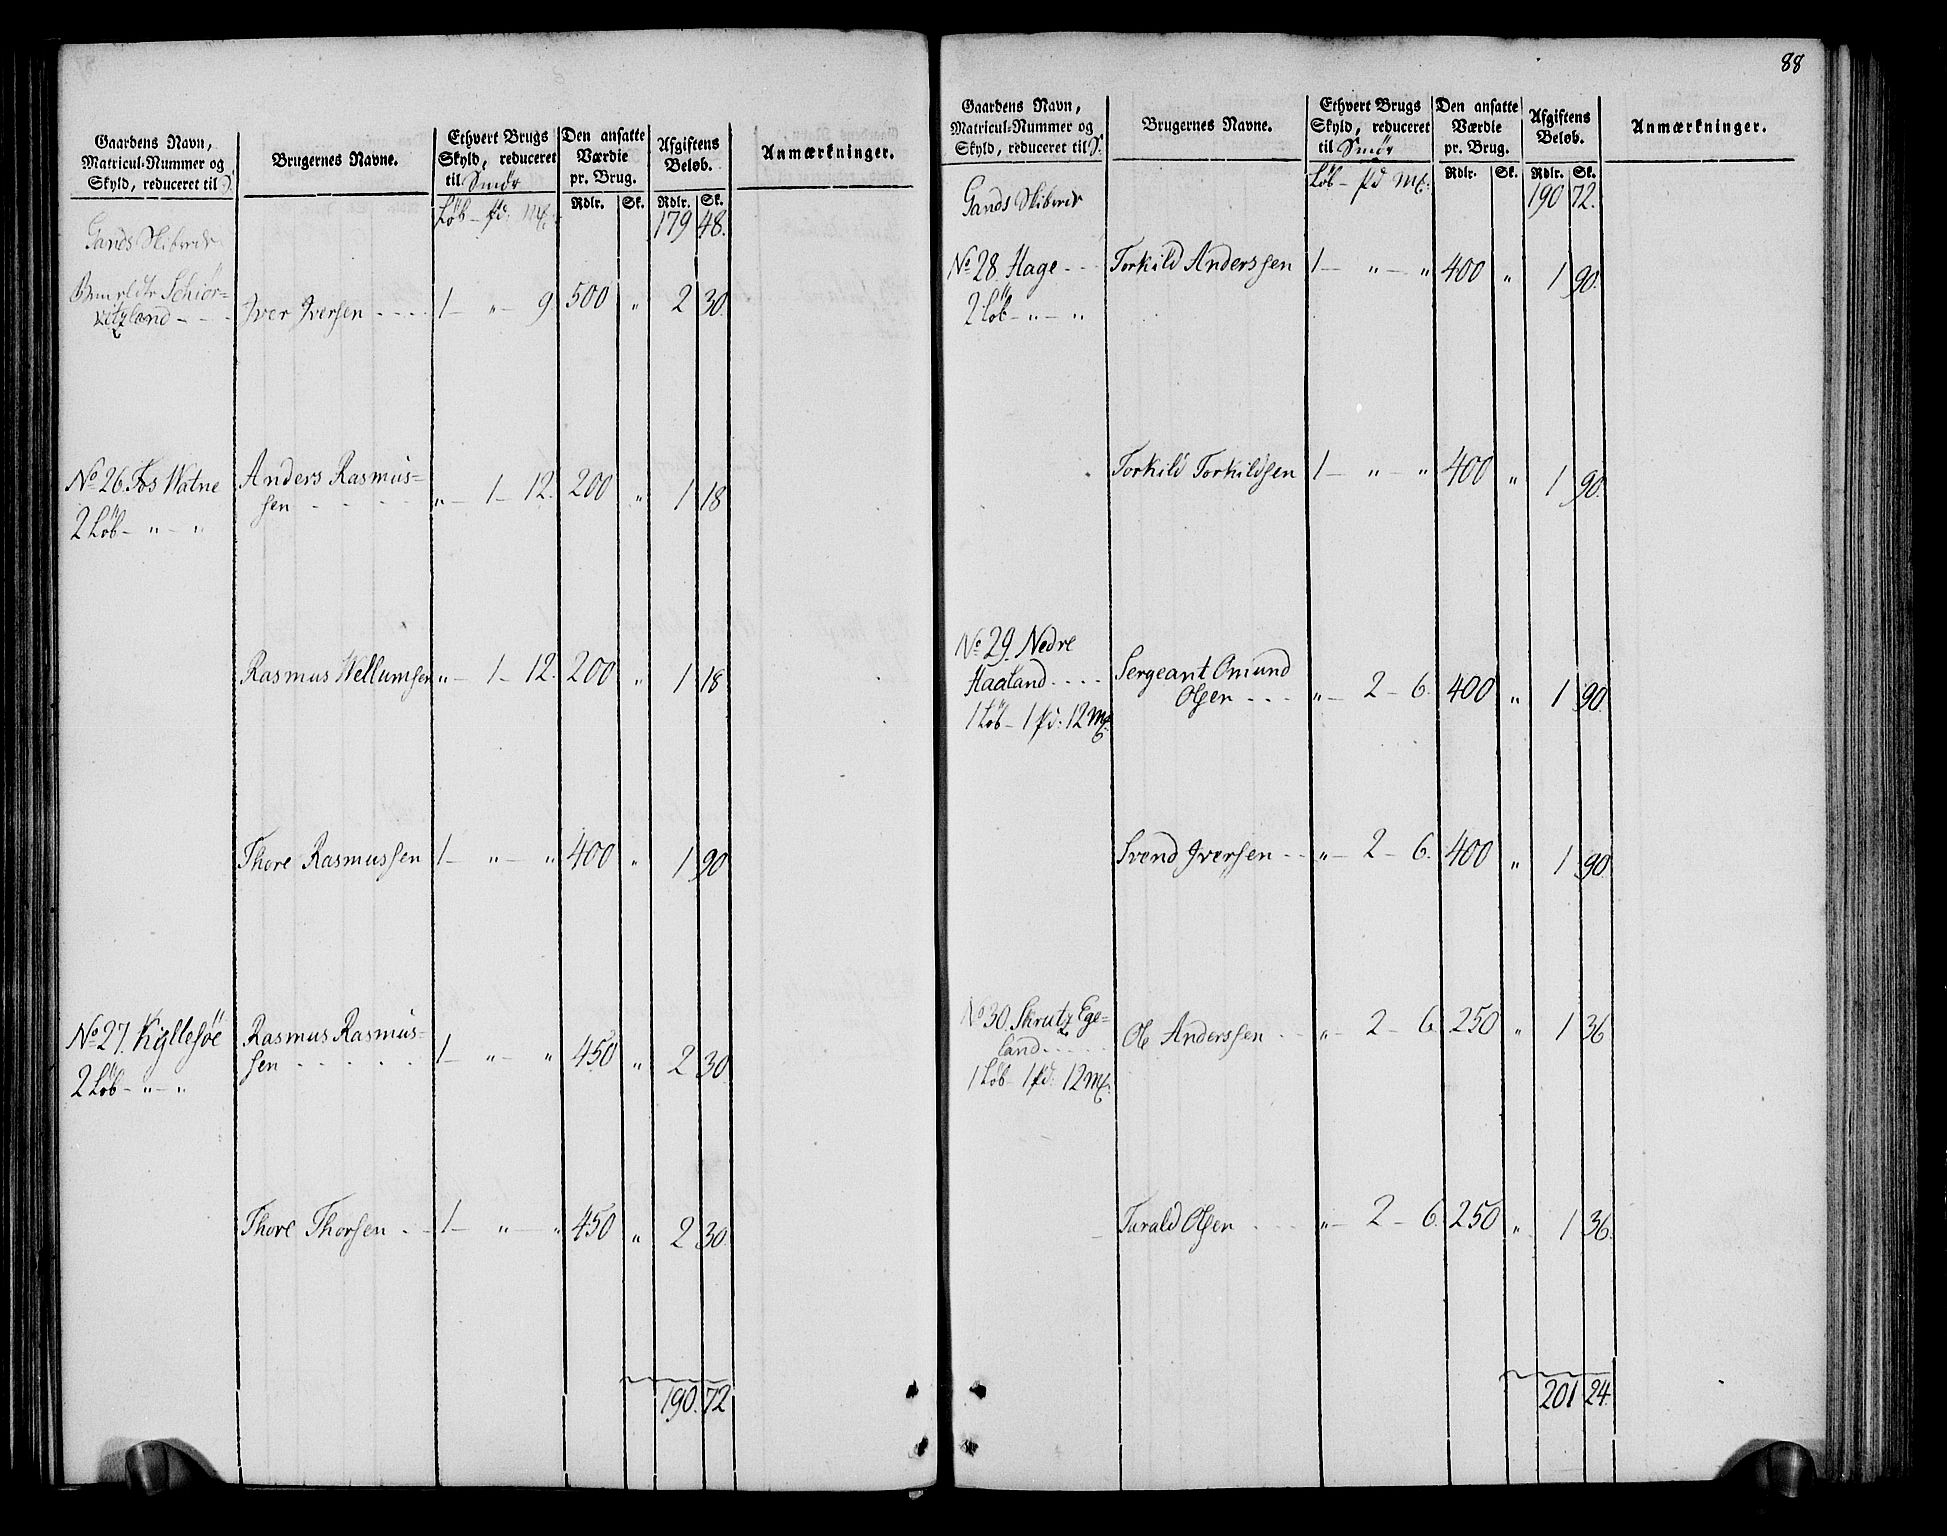 Gaardens Navn, Matricul-Nummer og Skyld, reduceret til S.
Brugernes Navne.
Ethvert Brugs Skyld, reduceret til Smør
Den ansatte Værdie pr. Brug.
Afgiftens Beløb.
Anmærkninger.
Løb – pd: mk:
Rdlr. Sk. Rdlr. Sk.
Gands Skibrede
179 48.
Schiør=
land – – – Iver Iversen – – – – 1 – „ – 9. 500 „ 2 30.
No 26. Fos Watne Anders Rasmus=
sen „ – 1 – 12. 200 „ 1 18
2 Løb – „ – „
Rasmus Wellumsen „ – 1 – 12. 200 „ 1 18
Thore Rasmussen 1 – „ – „ 400 „ 1 90
No 27. Kyllesøe Rasmus Rasmus=
sen 1 – „ – „ 450 „ 2 30.
2 Løb – „ – „
Thore Thorsen – – 1 – „ – „ 450 „ 2 30.
190. 72
88
Gaardens Navn, Matricul-Nummer og Skyld, reduceret til S.
Brugernes Navne.
Ethvert Brugs Skyld, reduceret til Smør
Den ansatte Værdie pr. Brug.
Afgiftens Beløb.
Anmærkninger.
Løb – pd mk:
Rdlr. Sk. Rdlr. Sk.
Gands Skibrede
190 72.
No 28 Hage – – – Torkild Anderssen 1 – „ – „ 400 „ 1 90.
2 Løb – „ – „
Torkild Torkildsen 1 – „ – „ 400 „ 1 90.
No 29. Nedre
Haaland – – – – Sergeant Omund
Olsen – – – „ – 2 – 6. 400 „ 1 90.
1 Løb – 1 pd: 12 mk.
Svend Iversen – – „ – 2 – 6. 400 „ 1 90.
No 30. Skrutz Ege=
land – – – – – Ole Anderssen – – „ – 2 – 6. 250 „ 1 36
1 Løb – 1 pd: 12 mk:
Tarald Olsen – – – – „ – 2 – 6. 250 „ 1 36.
201 24.